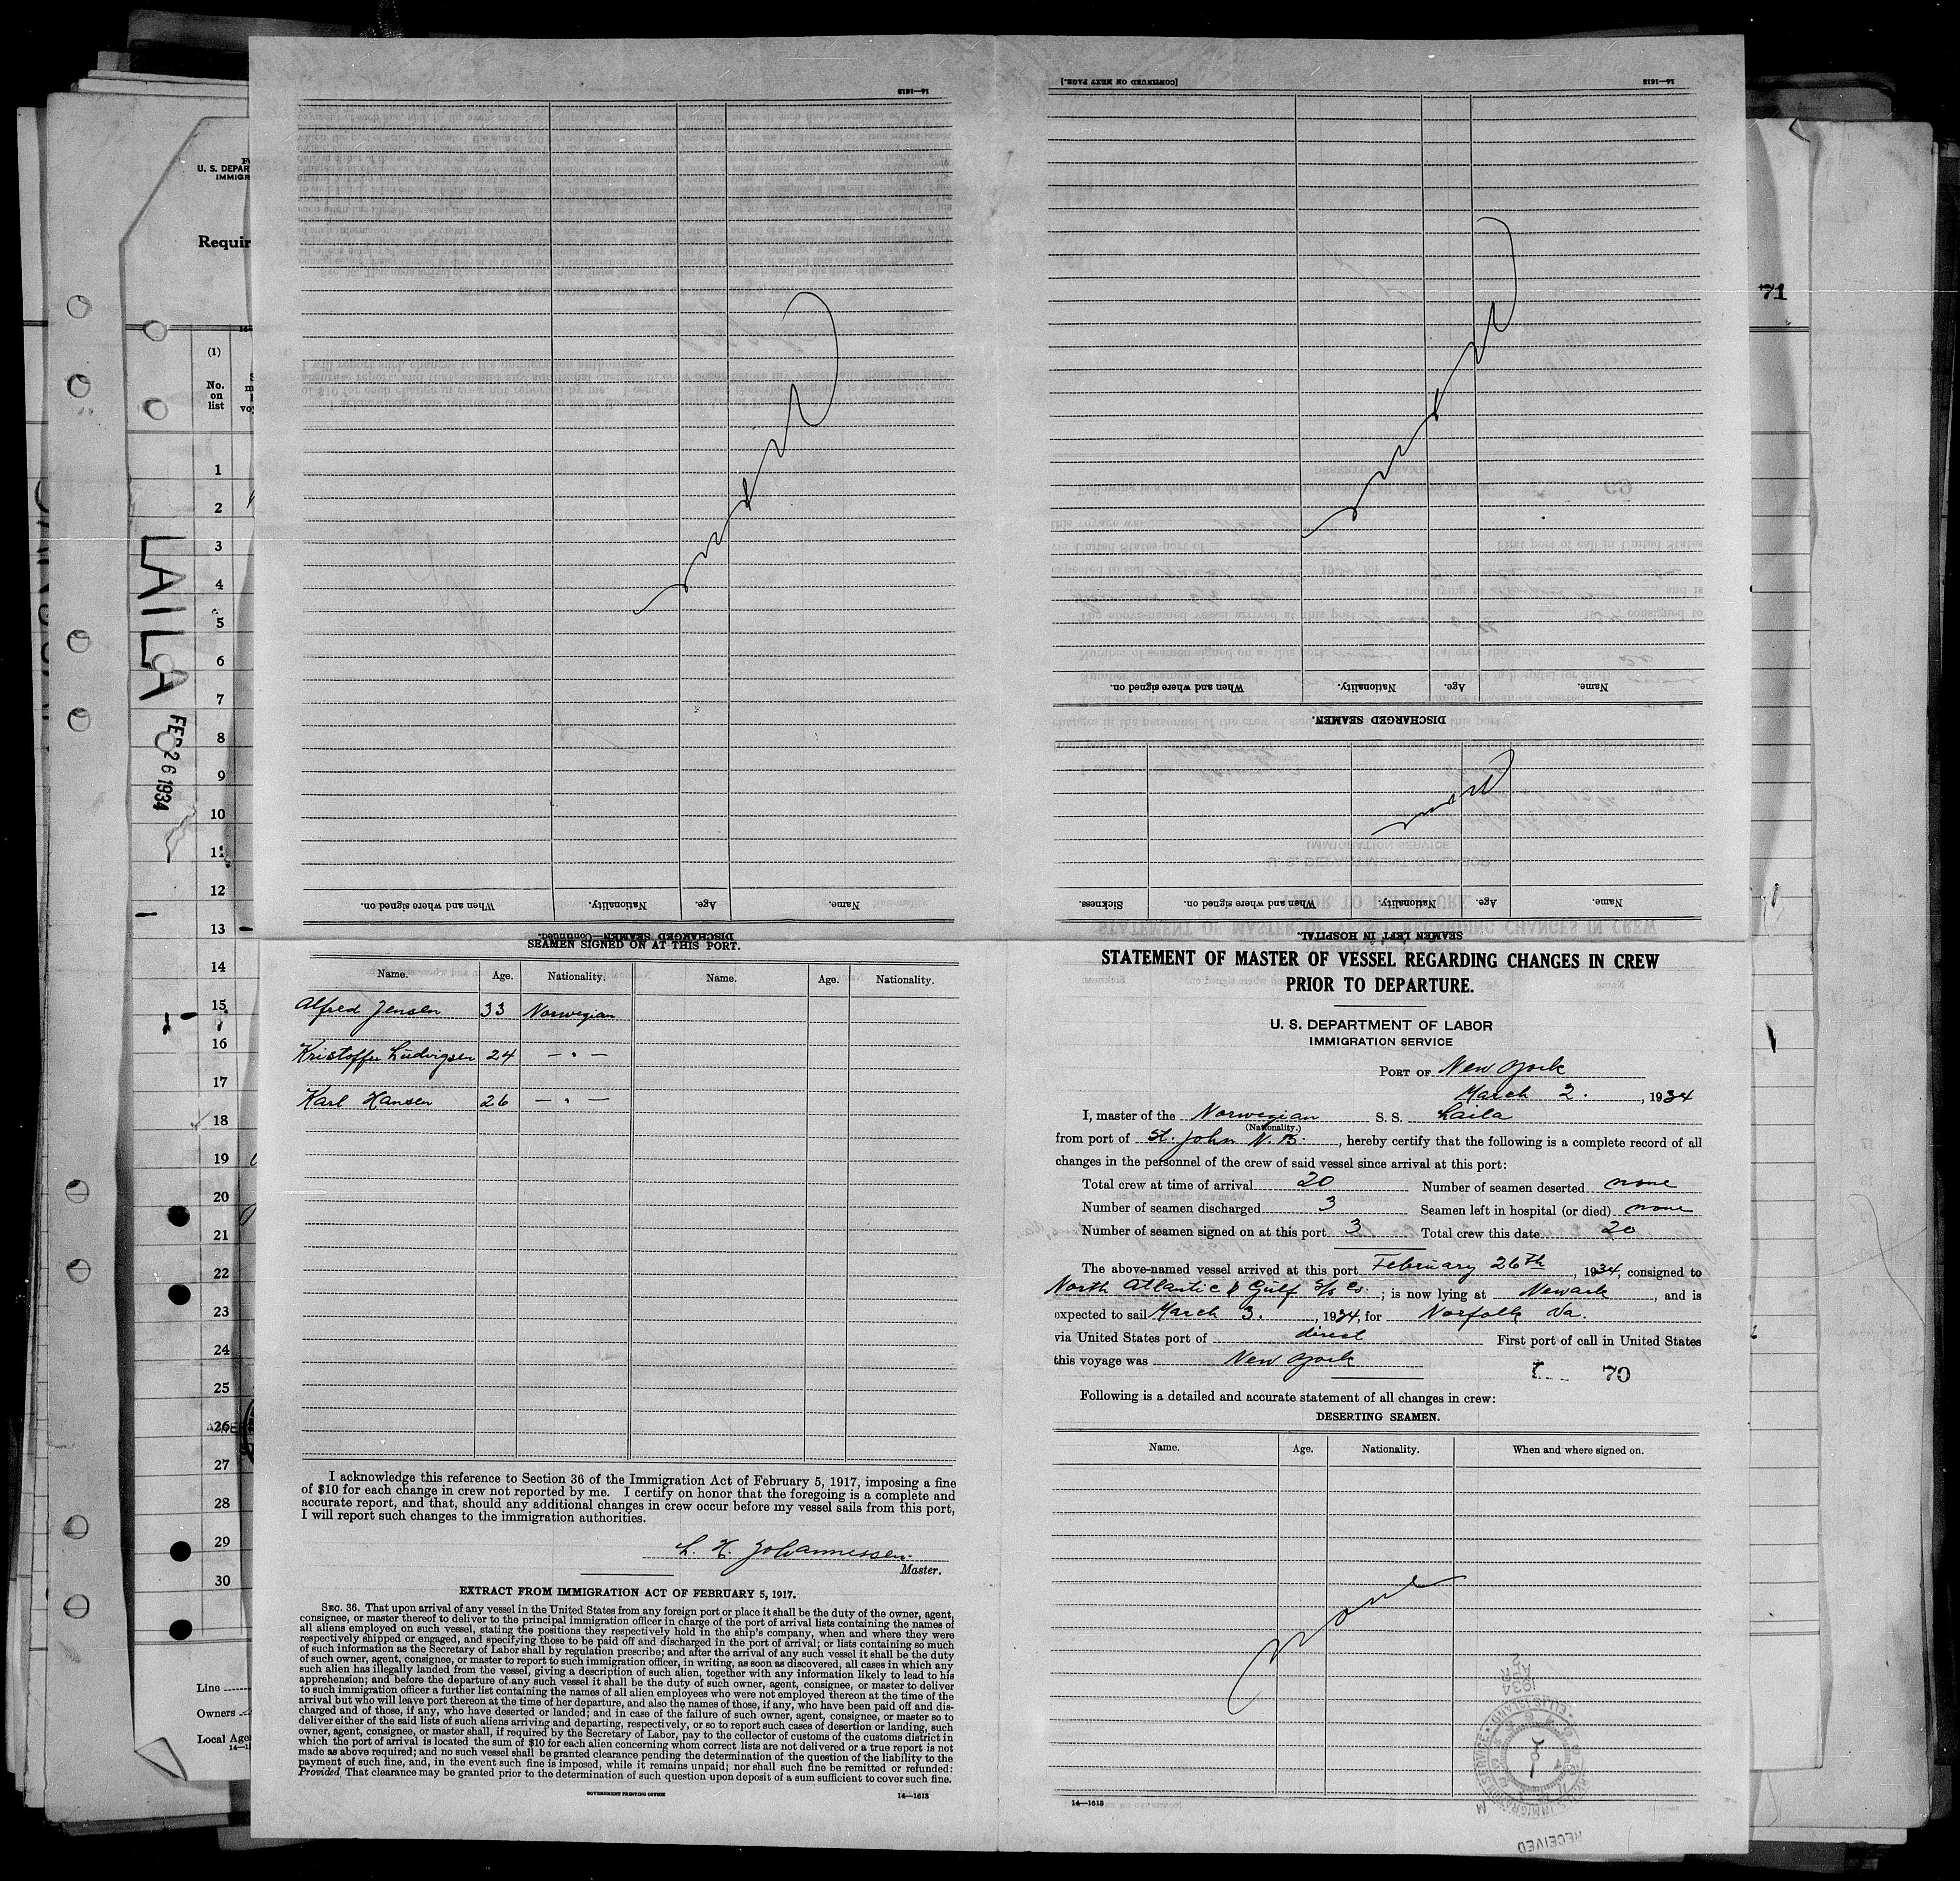 F
U. S. DEPAR
IMMIGR
Requir
(1)
No.
on
list
LAILA
FEB 26 1934
1
2
3
4
5
6
7
8
9
10
11
12
13
14
15
16
17
18
19
20
21
22
23
24
25
26
27
28
29
30
Line
Owners
Local Age
71
14—1613
DISCHARGED SEAMEN—Continued.
Name. Age. Nationality. When and where signed on.
[CONTINUED ON NEXT PAGE.] 14—1613
DISCHARGED SEAMEN.
Name. Age. Nationality. When and where signed on.
SEAMEN LEFT IN HOSPITAL.
Name. Age. Nationality. When and where signed on. Sickness.
SEAMEN SIGNED ON AT THIS PORT.
Name. Age. Nationality. Name. Age. Nationality.
Alfred Jensen 33 Norwegian
Kristoffer Ludvigsen 24 — " —
Karl Hansen 26 — " —
I acknowledge this reference to Section 36 of the Immigration Act of February 5, 1917, imposing a fine
of $10 for each change in crew not reported by me. I certify on honor that the foregoing is a complete and
accurate report, and that, should any additional changes in crew occur before my vessel sails from this port,
I will report such changes to the immigration authorities.
L. H. Johannessen.
Master.
EXTRACT FROM IMMIGRATION ACT OF FEBRUARY 5, 1917.
SEC. 36. That upon arrival of any vessel in the United States from any foreign port or place it shall be the duty of the owner, agent,
consignee, or master thereof to deliver to the principal immigration officer in charge of the port of arrival lists containing the names of
all aliens employed on such vessel, stating the positions they respectively hold in the ship's company, when and where they were
respectively shipped or engaged, and specifying those to be paid off and discharged in the port of arrival; or lists containing so much
of such information as the Secretary of Labor shall by regulation prescribe; and after the arrival of any such vessel it shall be the duty
of such owner, agent, consignee, or master to report to such immigration officer, in writing, as soon as discovered, all cases in which any
such alien has illegally landed from the vessel, giving a description of such alien, together with any information likely to lead to his
apprehension; and before the departure of any such vessel it shall be the duty of such owner, agent, consignee, or master to deliver
to such immigration officer a further list containing the names of all alien employees who were not employed thereon at the time of the
arrival but who will leave port thereon at the time of her departure, and also the names of those, if any, who have been paid off and dis-
charged and of those, if any, who have deserted or landed; and in case of the failure of such owner, agent, consignee, or master so to
deliver either of the said lists of such aliens arriving and departing, respectively, or so to report such cases of desertion or landing, such
owner, agent, consignee, or master shall, if required by the Secretary of Labor, pay to the collector of customs of the customs district in
which the port of arrival is located the sum of $10 for each alien concerning whom correct lists are not delivered or a true report is not
made as above required; and no such vessel shall be granted clearance pending the determination of the question of the liability to the
payment of such fine, and, in the event such fine is imposed, while it remains unpaid; nor shall such fine be remitted or refunded:
Provided, That clearance may be granted prior to the determination of such question upon deposit of a sum sufficient to cover such fine.
GOVERNMENT PRINTING OFFICE 14—1613
STATEMENT OF MASTER OF VESSEL REGARDING CHANGES IN CREW
PRIOR TO DEPARTURE.
U. S. DEPARTMENT OF LABOR
IMMIGRATION SERVICE
PORT OF New York
March 2. , 1934
I, master of the Norwegian S. S. Laila
(Nationality.)
from port of St. John N. B. , hereby certify that the following is a complete record of all
changes in the personnel of the crew of said vessel since arrival at this port:
Total crew at time of arrival 20 Number of seamen deserted none
Number of seamen discharged 3 Seamen left in hospital (or died) none
Number of seamen signed on at this port 3 Total crew this date 20
The above-named vessel arrived at this port February 26th , 1934, consigned to
North Atlantic & Gulf S/S Co. ; is now lying at Newark , and is
expected to sail March 3. , 1934, for Norfolk Va.
via United States port of direct First port of call in United States
this voyage was New York
70
Following is a detailed and accurate statement of all changes in crew:
DESERTING SEAMEN.
Name. Age. Nationality. When and where signed on.
None
14—1613
RECEIVED
MAR 2 1934
ELLIS ISLAND